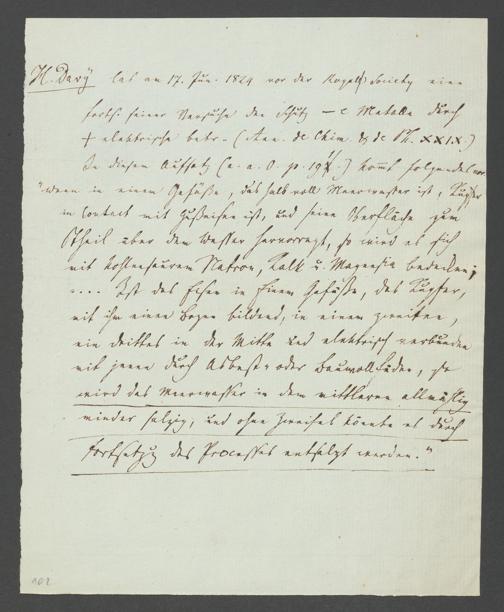 H. Davy las am 17. Jun. 1824 vor der Royal Society eine
forts. seiner Versuche den Schutz – e Metalle durch
+ elektrische betr. (Ann. de Chim. & de Ph. XXIX.)
In diesem Aufsatz (a. a. O. p. ) kommt folgendes vor
"wenn in einem Gefäße, das halb voll Meerwasser ist, Kupfer
in Contact mit Gußeisen ist, und seine Oberfläche zum
Theil über dem Wasser hervorragt, so wird es sich
mit kohlensaurem Natron, Kalk u. Magnesia bedecken;
.... Ist das Eisen in Einem Gefäße, das Kupfer,
mit ihm einen Bogen bildend, in einem zweiten,
ein drittes in der Mitte und elektrisch verbunden
mit jenen durch Asbest- oder Baumwollfäden, so
wird das Meerwasser in dem mittleren allmählig
minder salzig, und ohne Zweifel könnte es durch
Fortsetzg des Processes entsalzt werden."
102